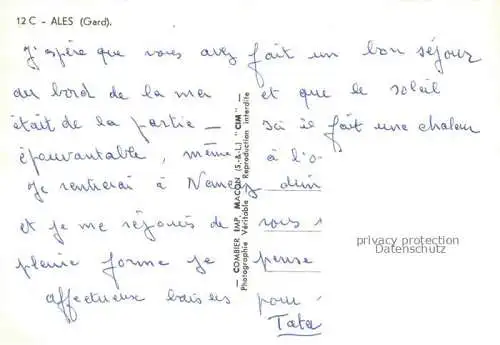 12 C - ALES (Gard).
J'espère que vous avez fait un bon séjour
au bord de la mer et que le soleil
était de la partie — Ici il fait une chaleur
épouvantable, même à l'o
Je rentrerai à Nancy dim
et je me réjouis de vous
pleine forme je pense
affectueux baisers pour
Tata
— COMBIER IMP. MACON (S.-&-L.) "CIM" —
Photographie Véritable - Reproduction interdite
privacy protection
Datenschutz